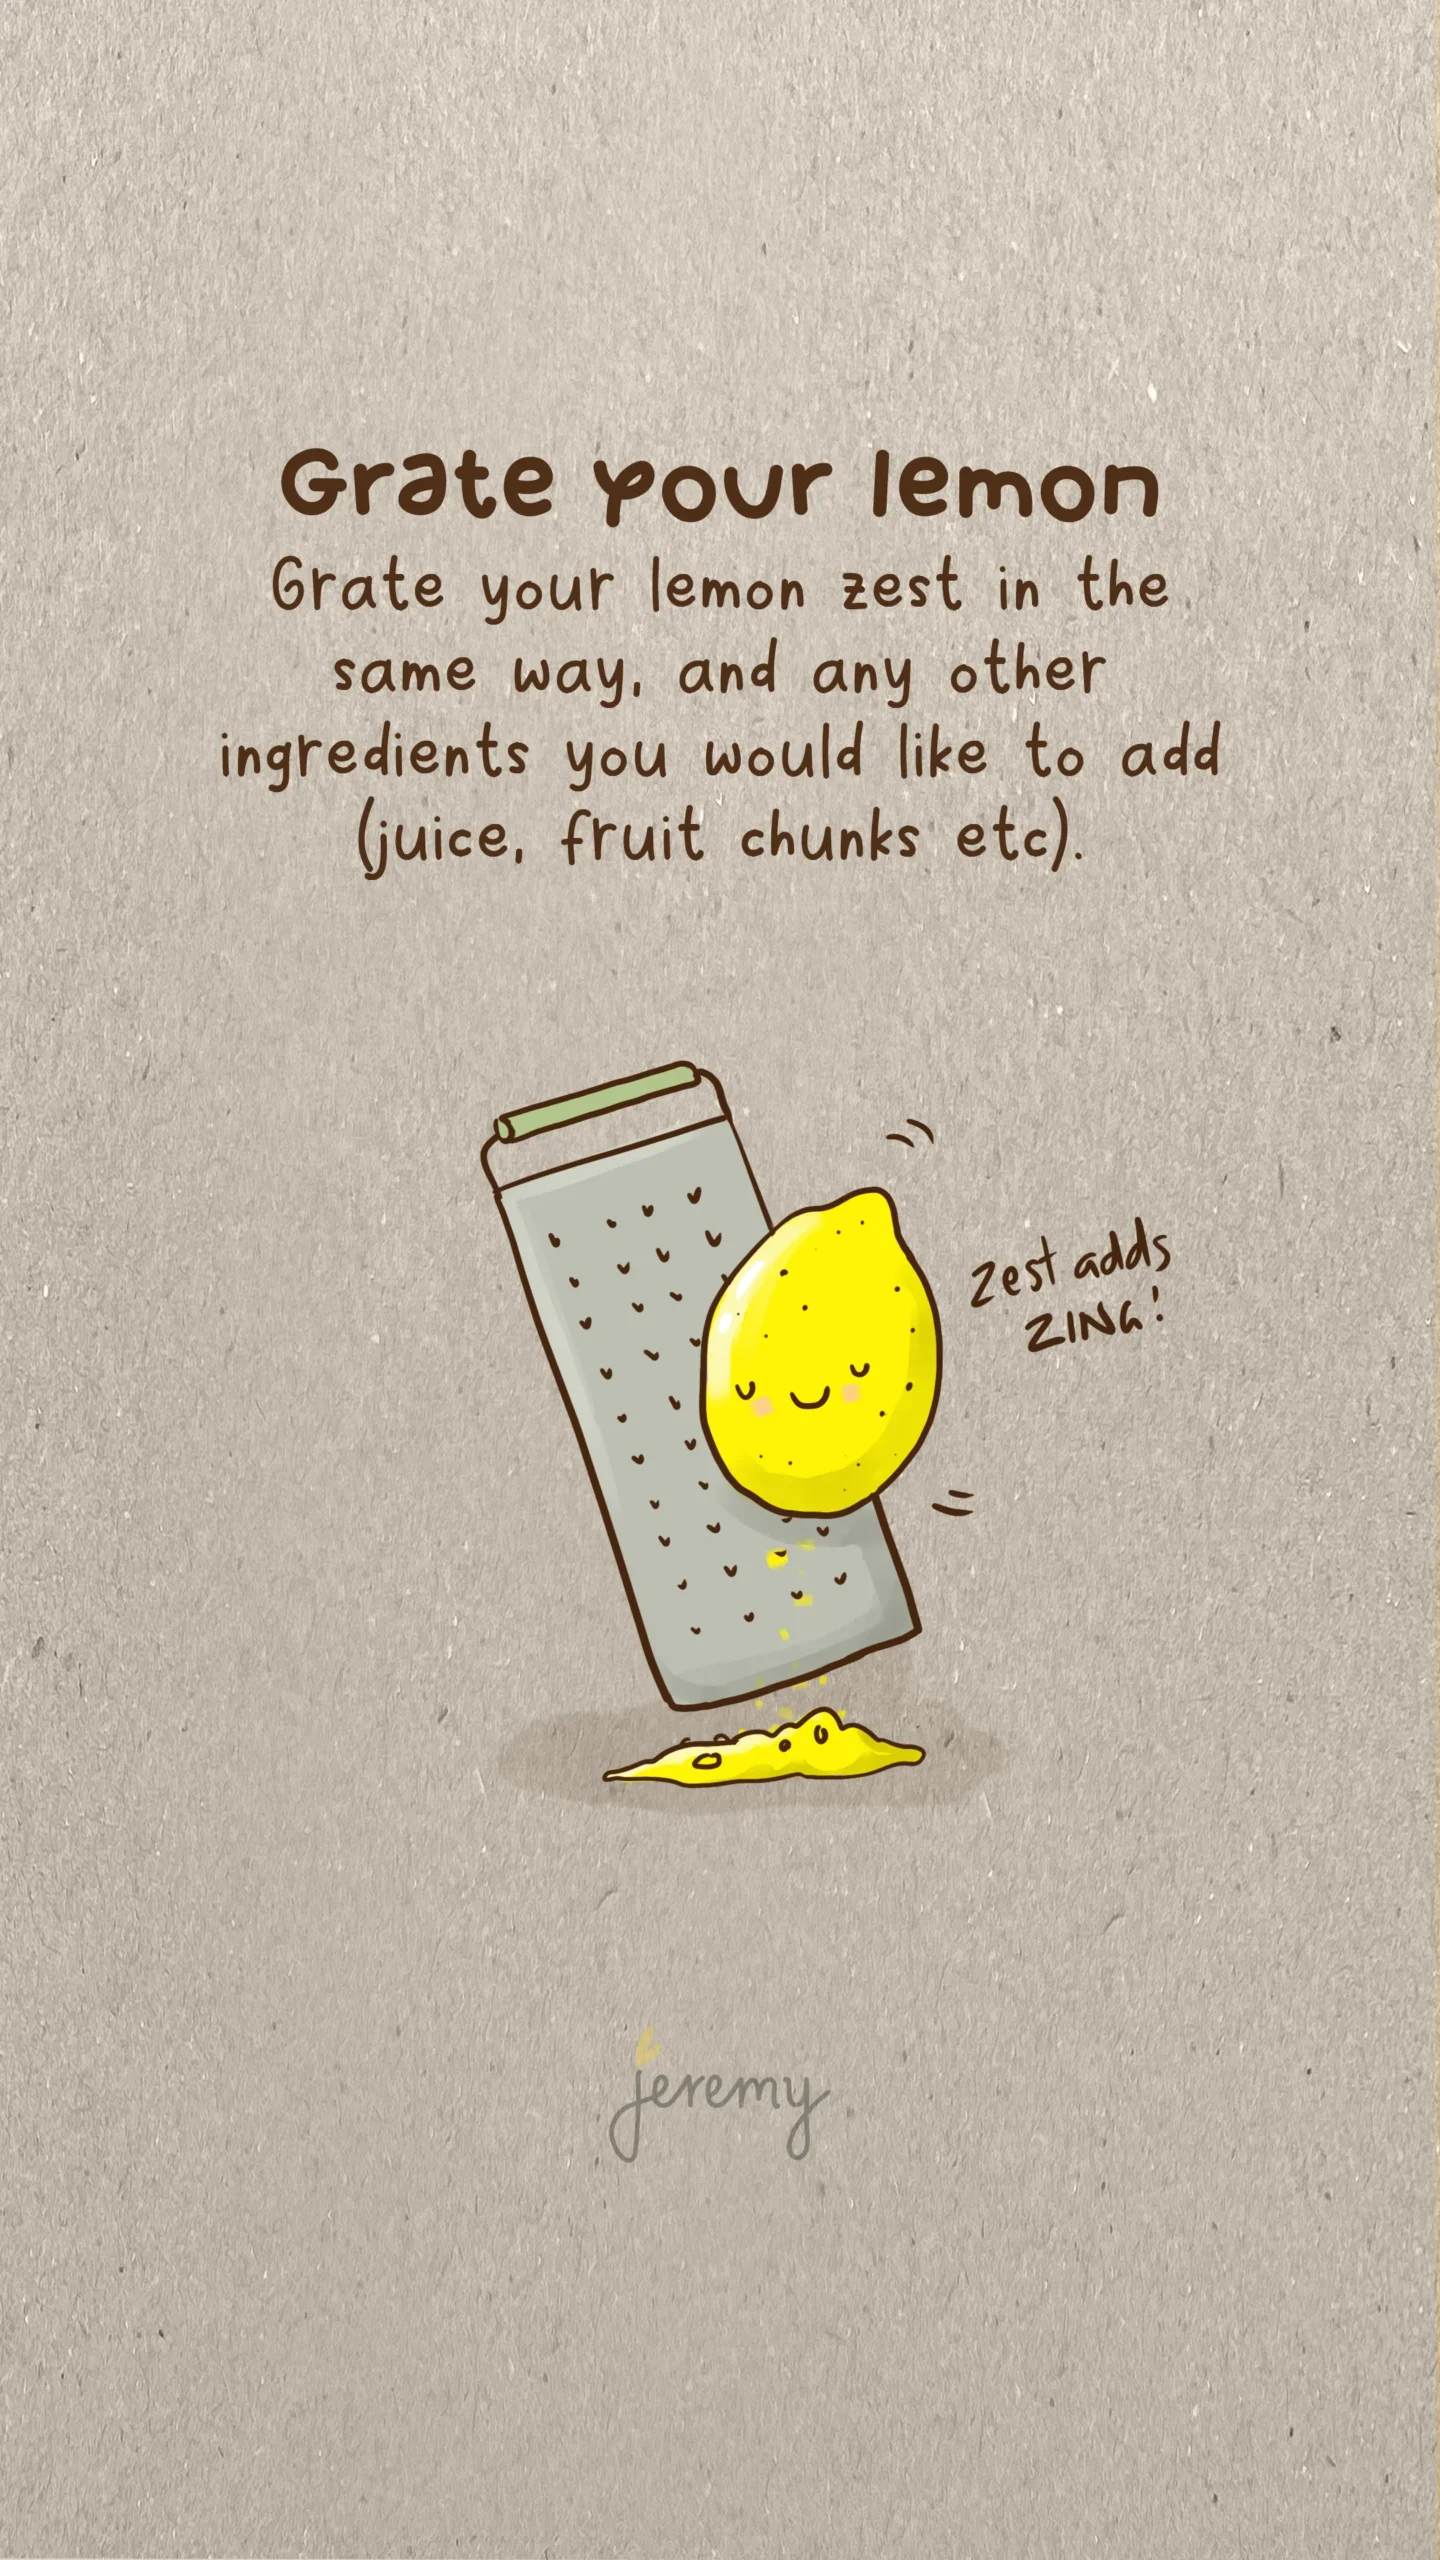 Grate your lemon
Grate your lemon zest in the
same way, and any other
ingredients you would like to add
(juice, fruit chunks etc).
Zest adds
ZING!
jeremy